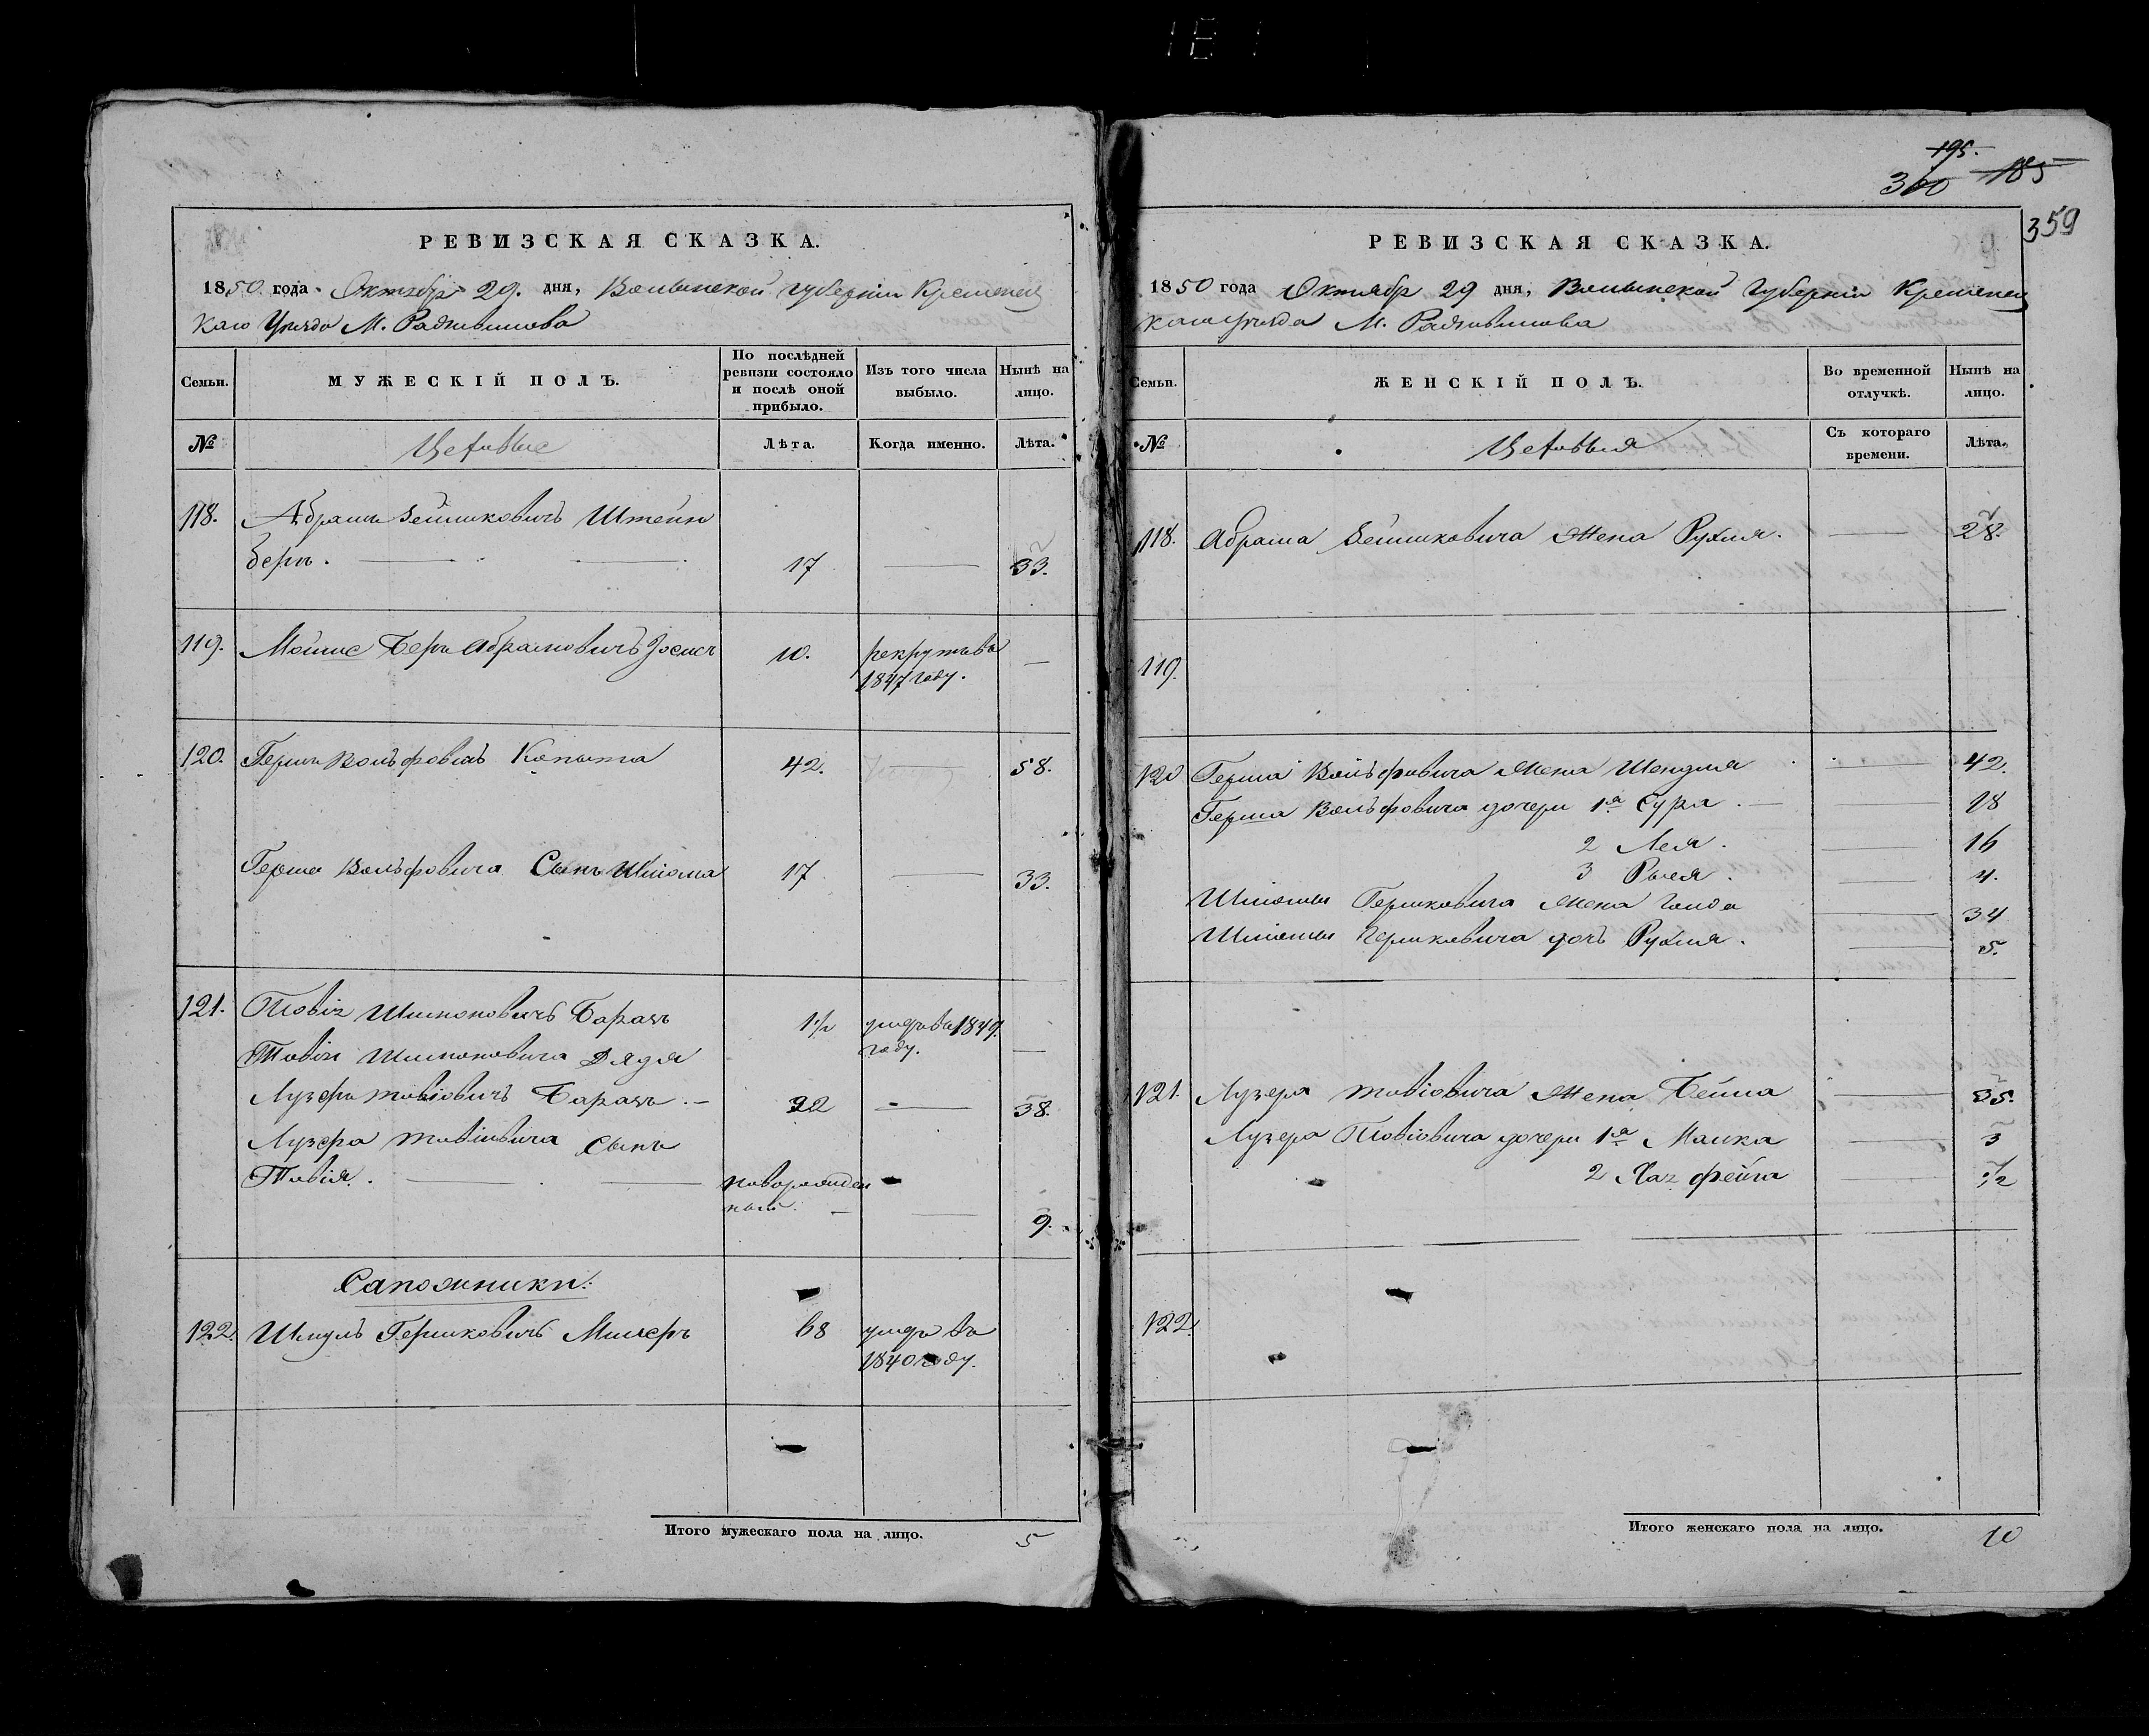 181
195.
360 185
359
РЕВИЗСКАЯ СКАЗКА.
1850 года Октября 29. дня, Волынской губернiи Кременец
каго Уезда М. Радзивилова
Семьи.
МУЖЕСКІЙ ПОЛЪ.
По послѣдней ревизіи состояло и послѣ оной прибыло.
Изъ того числа выбыло.
Нынѣ на лицо.
№
Цеховые
Лѣта.
Когда именно.
Лѣта.
118. Абрамъ Зейликовичъ Штейн
бергъ. 17 33.
119. Мошке Беръ Абрамовичъ 10. рекрутъ въ
1847 году.
120. Гершъ Вольфовичъ Копыта 42. 58.
Герша Вольфовича Сынъ Шлiома 17 33.
121. Товiя Шимоновичъ Баразъ 1/2 умеръ въ 1849.
году.
Товiи Шимоновича Дядя
Лузеръ Товiовичъ Баразъ. 22 38.
Лузера Товiовича Сынъ
Товiя. новорожден
ный. 9.
Сапожники.
122. Шмуль Гершковичъ 68 умеръ въ
1840 году.
Итого мужескаго пола на лицо. 5
РЕВИЗСКАЯ СКАЗКА.
1850 года Октября 29 дня, Волынской Губернiи Кременец
каго уезда М. Радзивилова
Семьи.
ЖЕНСКІЙ ПОЛЪ.
Во временной отлучкѣ.
Нынѣ на лицо.
№
Цеховыя
Съ котораго времени.
Лѣта.
118. Абрама Зейликовича Жена Рухля. 28.
119.
120 Герша Вольфовича Жена Шендля 42.
Герша Вольфовича дочери 1я Сура. 18
2 Лея. 16
3 Рыся. 4.
Шлiомы Гершковича Жена Голда 34
Шлiомы Гершковича дочь Рухля. 5.
121. Лузера Товiовича Жена Бейла 35.
Лузера Товiовича дочери 1я Малка 3
2 Хая фейга 1/2
122.
Итого женскаго пола на лицо. 10